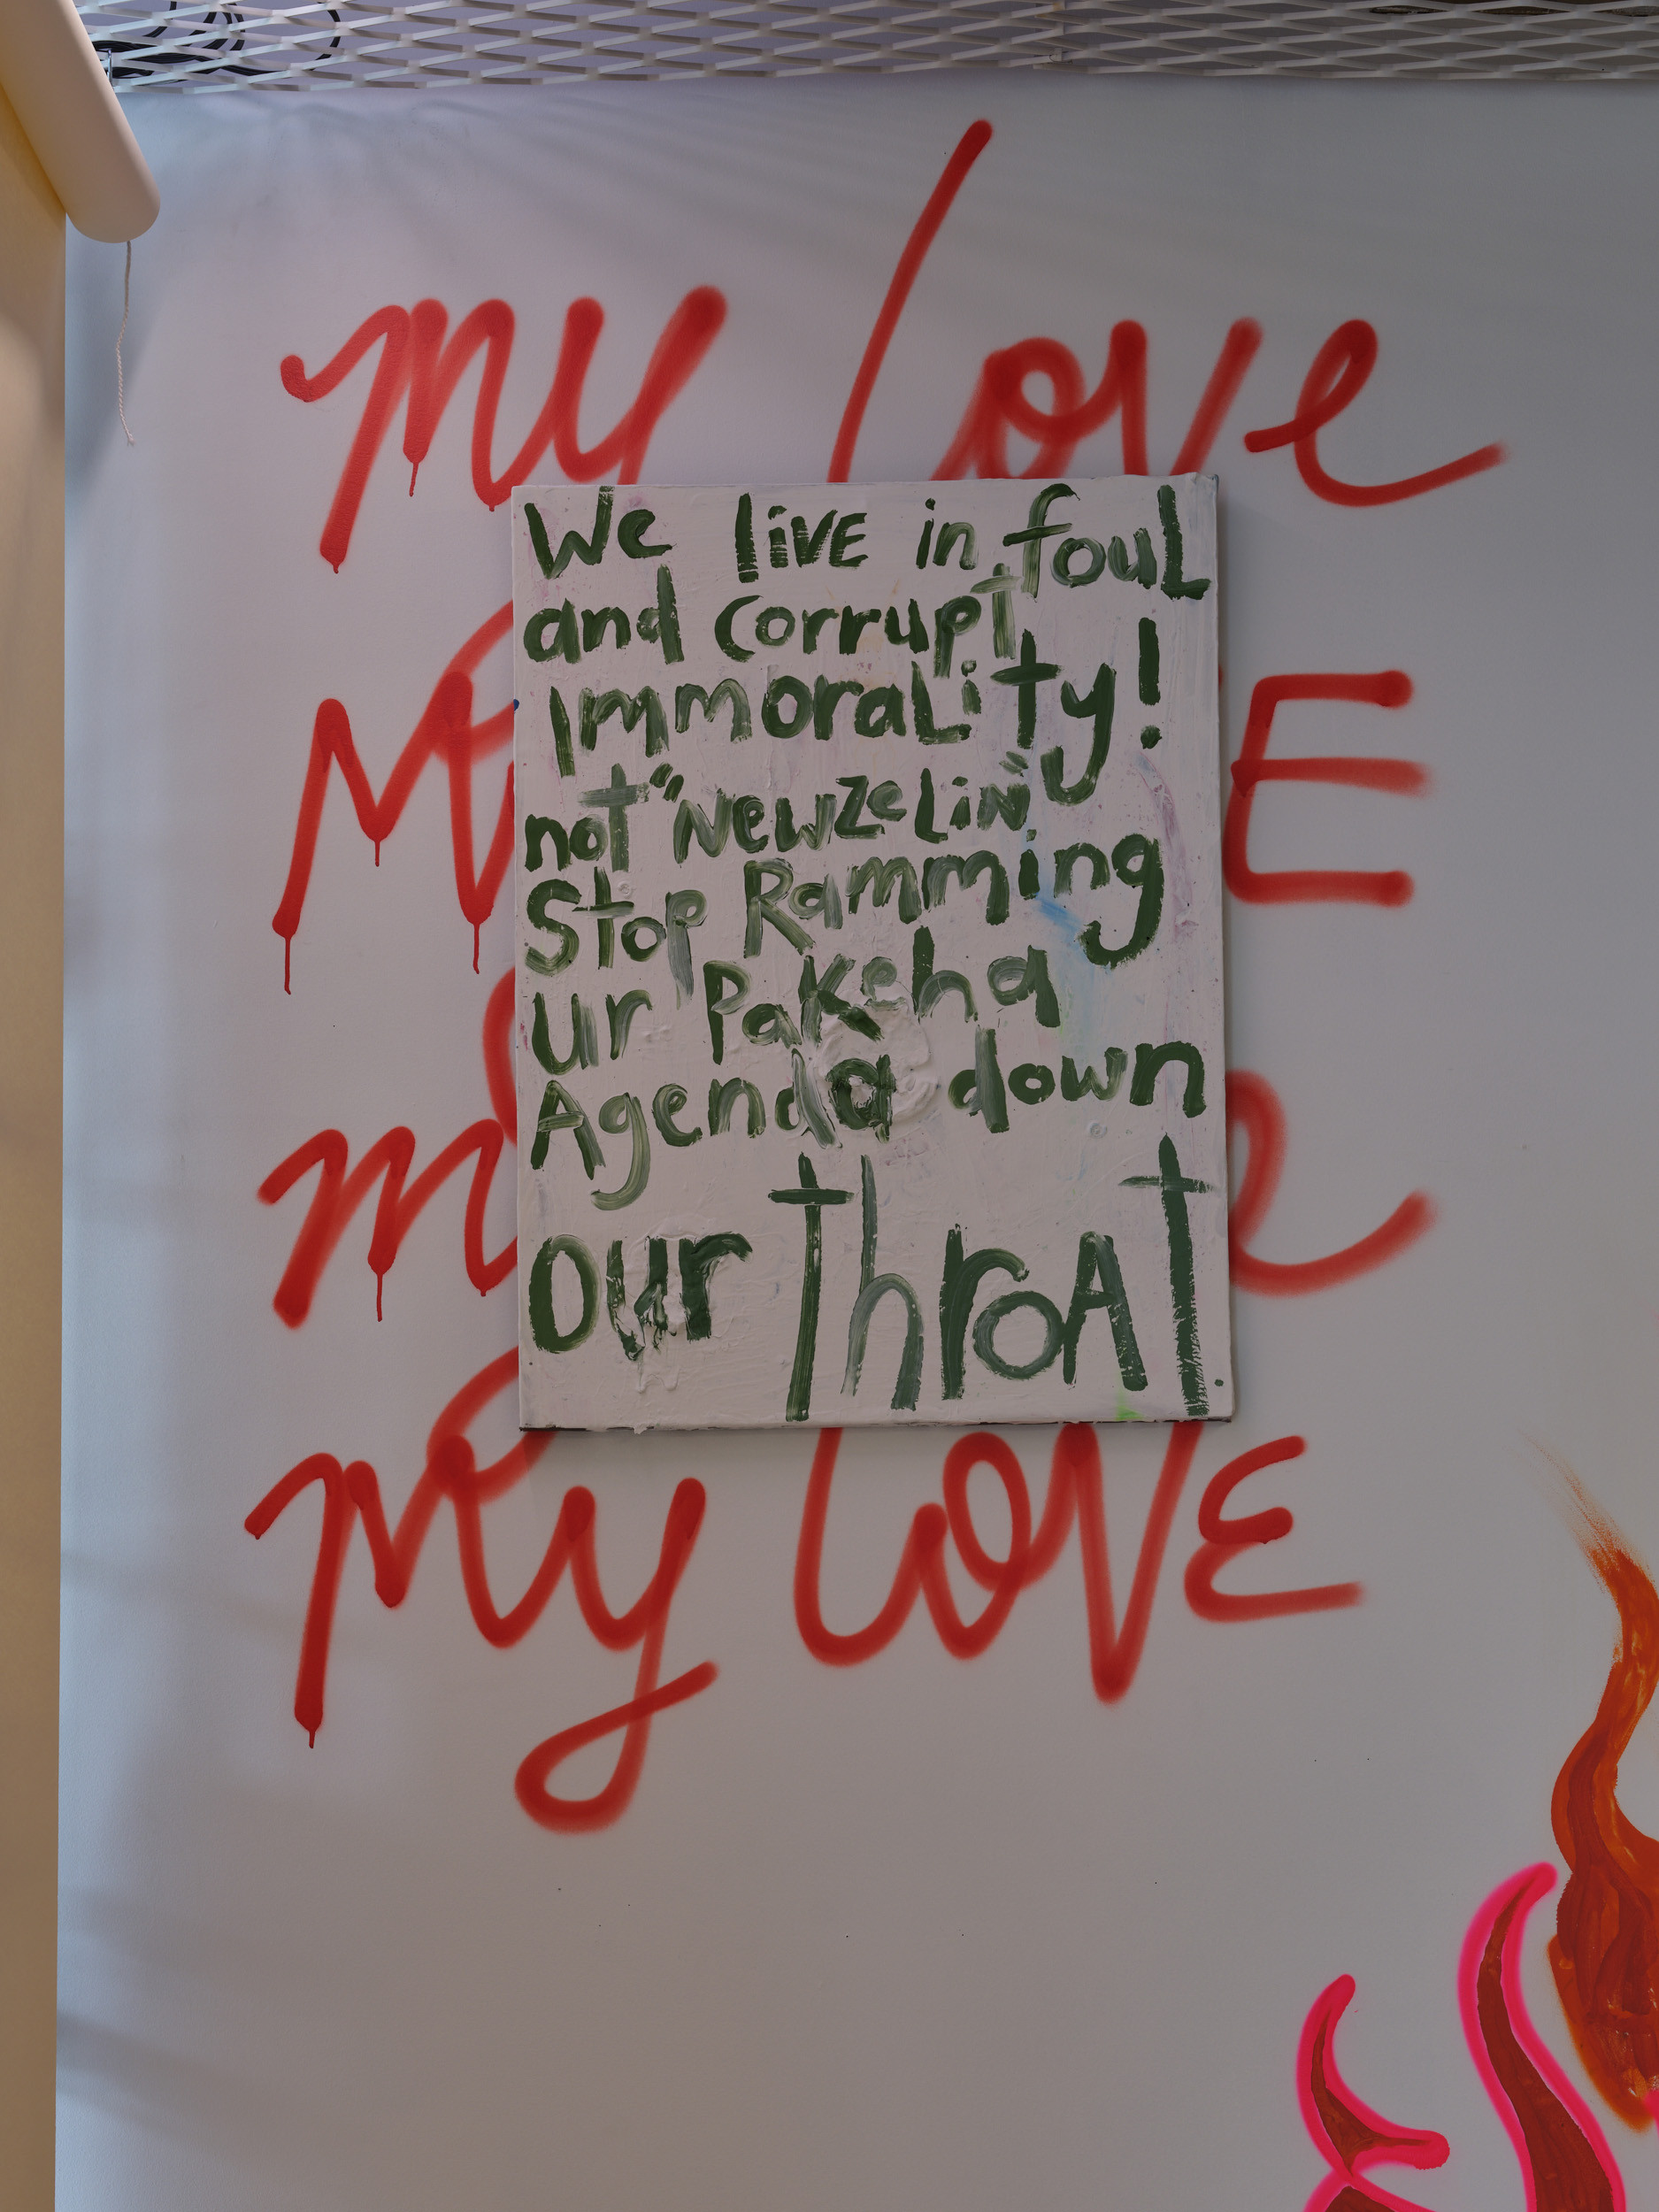 my love
We live in foul
and corrupt
ImmoraLity!
not "NewzeLin"
Stop Ramming
ur Pakeha
Agenda down
our throAT.
My loVE